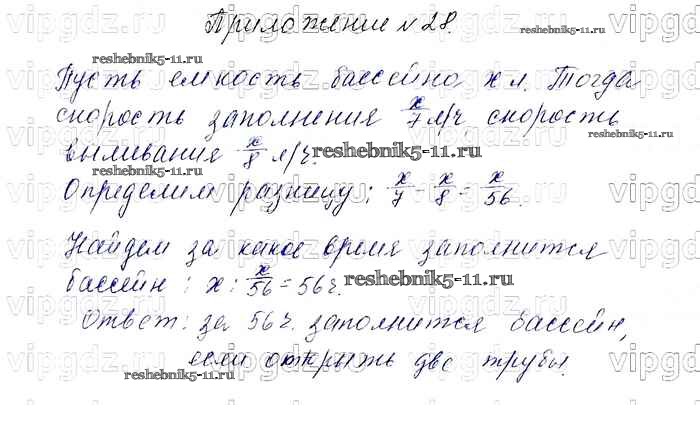 Приложение №28.
reshebnik5-11.ru
Пусть емкость бассейна x л. Тогда
скорость заполнения x/7 л/ч, скорость
reshebnik5-11.ru
выливания x/8 л/ч.
reshebnik5-11.ru
Определим разницу: x/7 - x/8 = x/56.
reshebnik5-11.ru
Найдем за какое время заполнится
бассейн: x : x/56 = 56ч.
reshebnik5-11.ru
Ответ: за 56ч. заполнится бассейн,
если открыть две трубы.
reshebnik5-11.ru